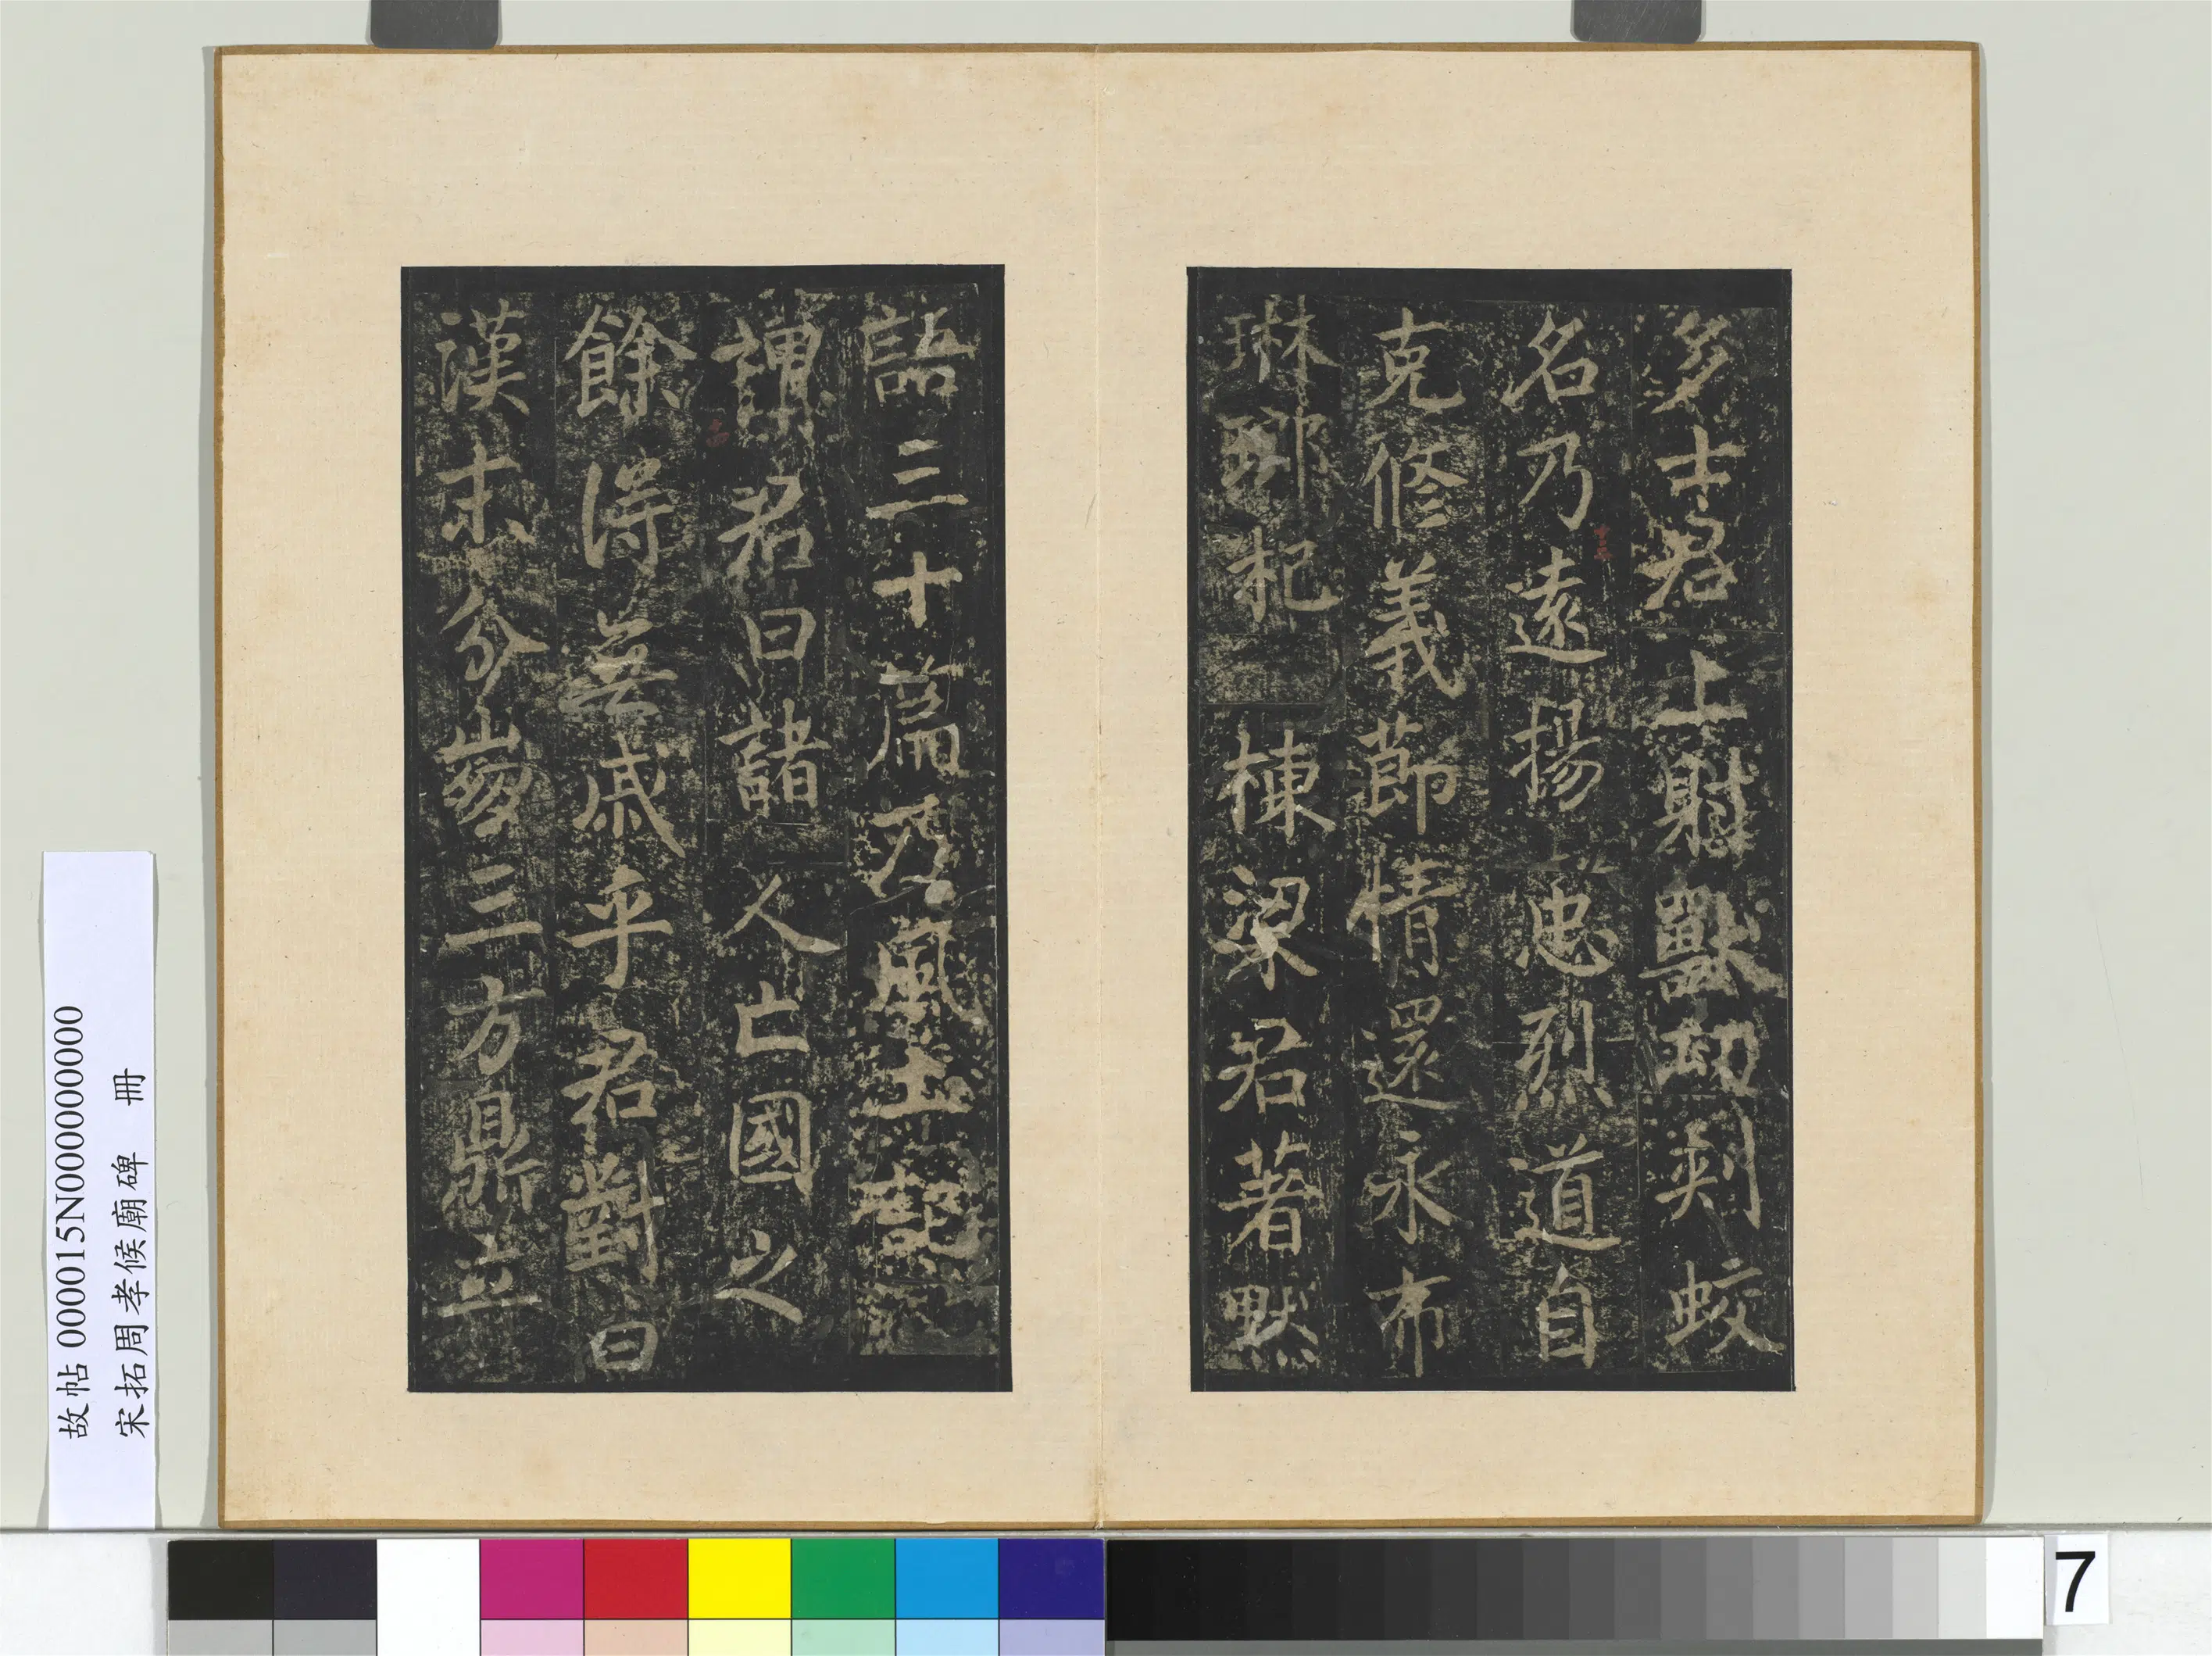 多士君上射獸切剡蛟
名乃遠揚忠烈道自
克修義節情還永布
琳琅杞 棟梁君著默
語三十篇乃風土記
謂君曰諸 人亡國之
餘得無戚乎君對曰
漢末分崩三方鼎立
故帖 000015N000000000
宋拓周孝候廟碑 冊
7